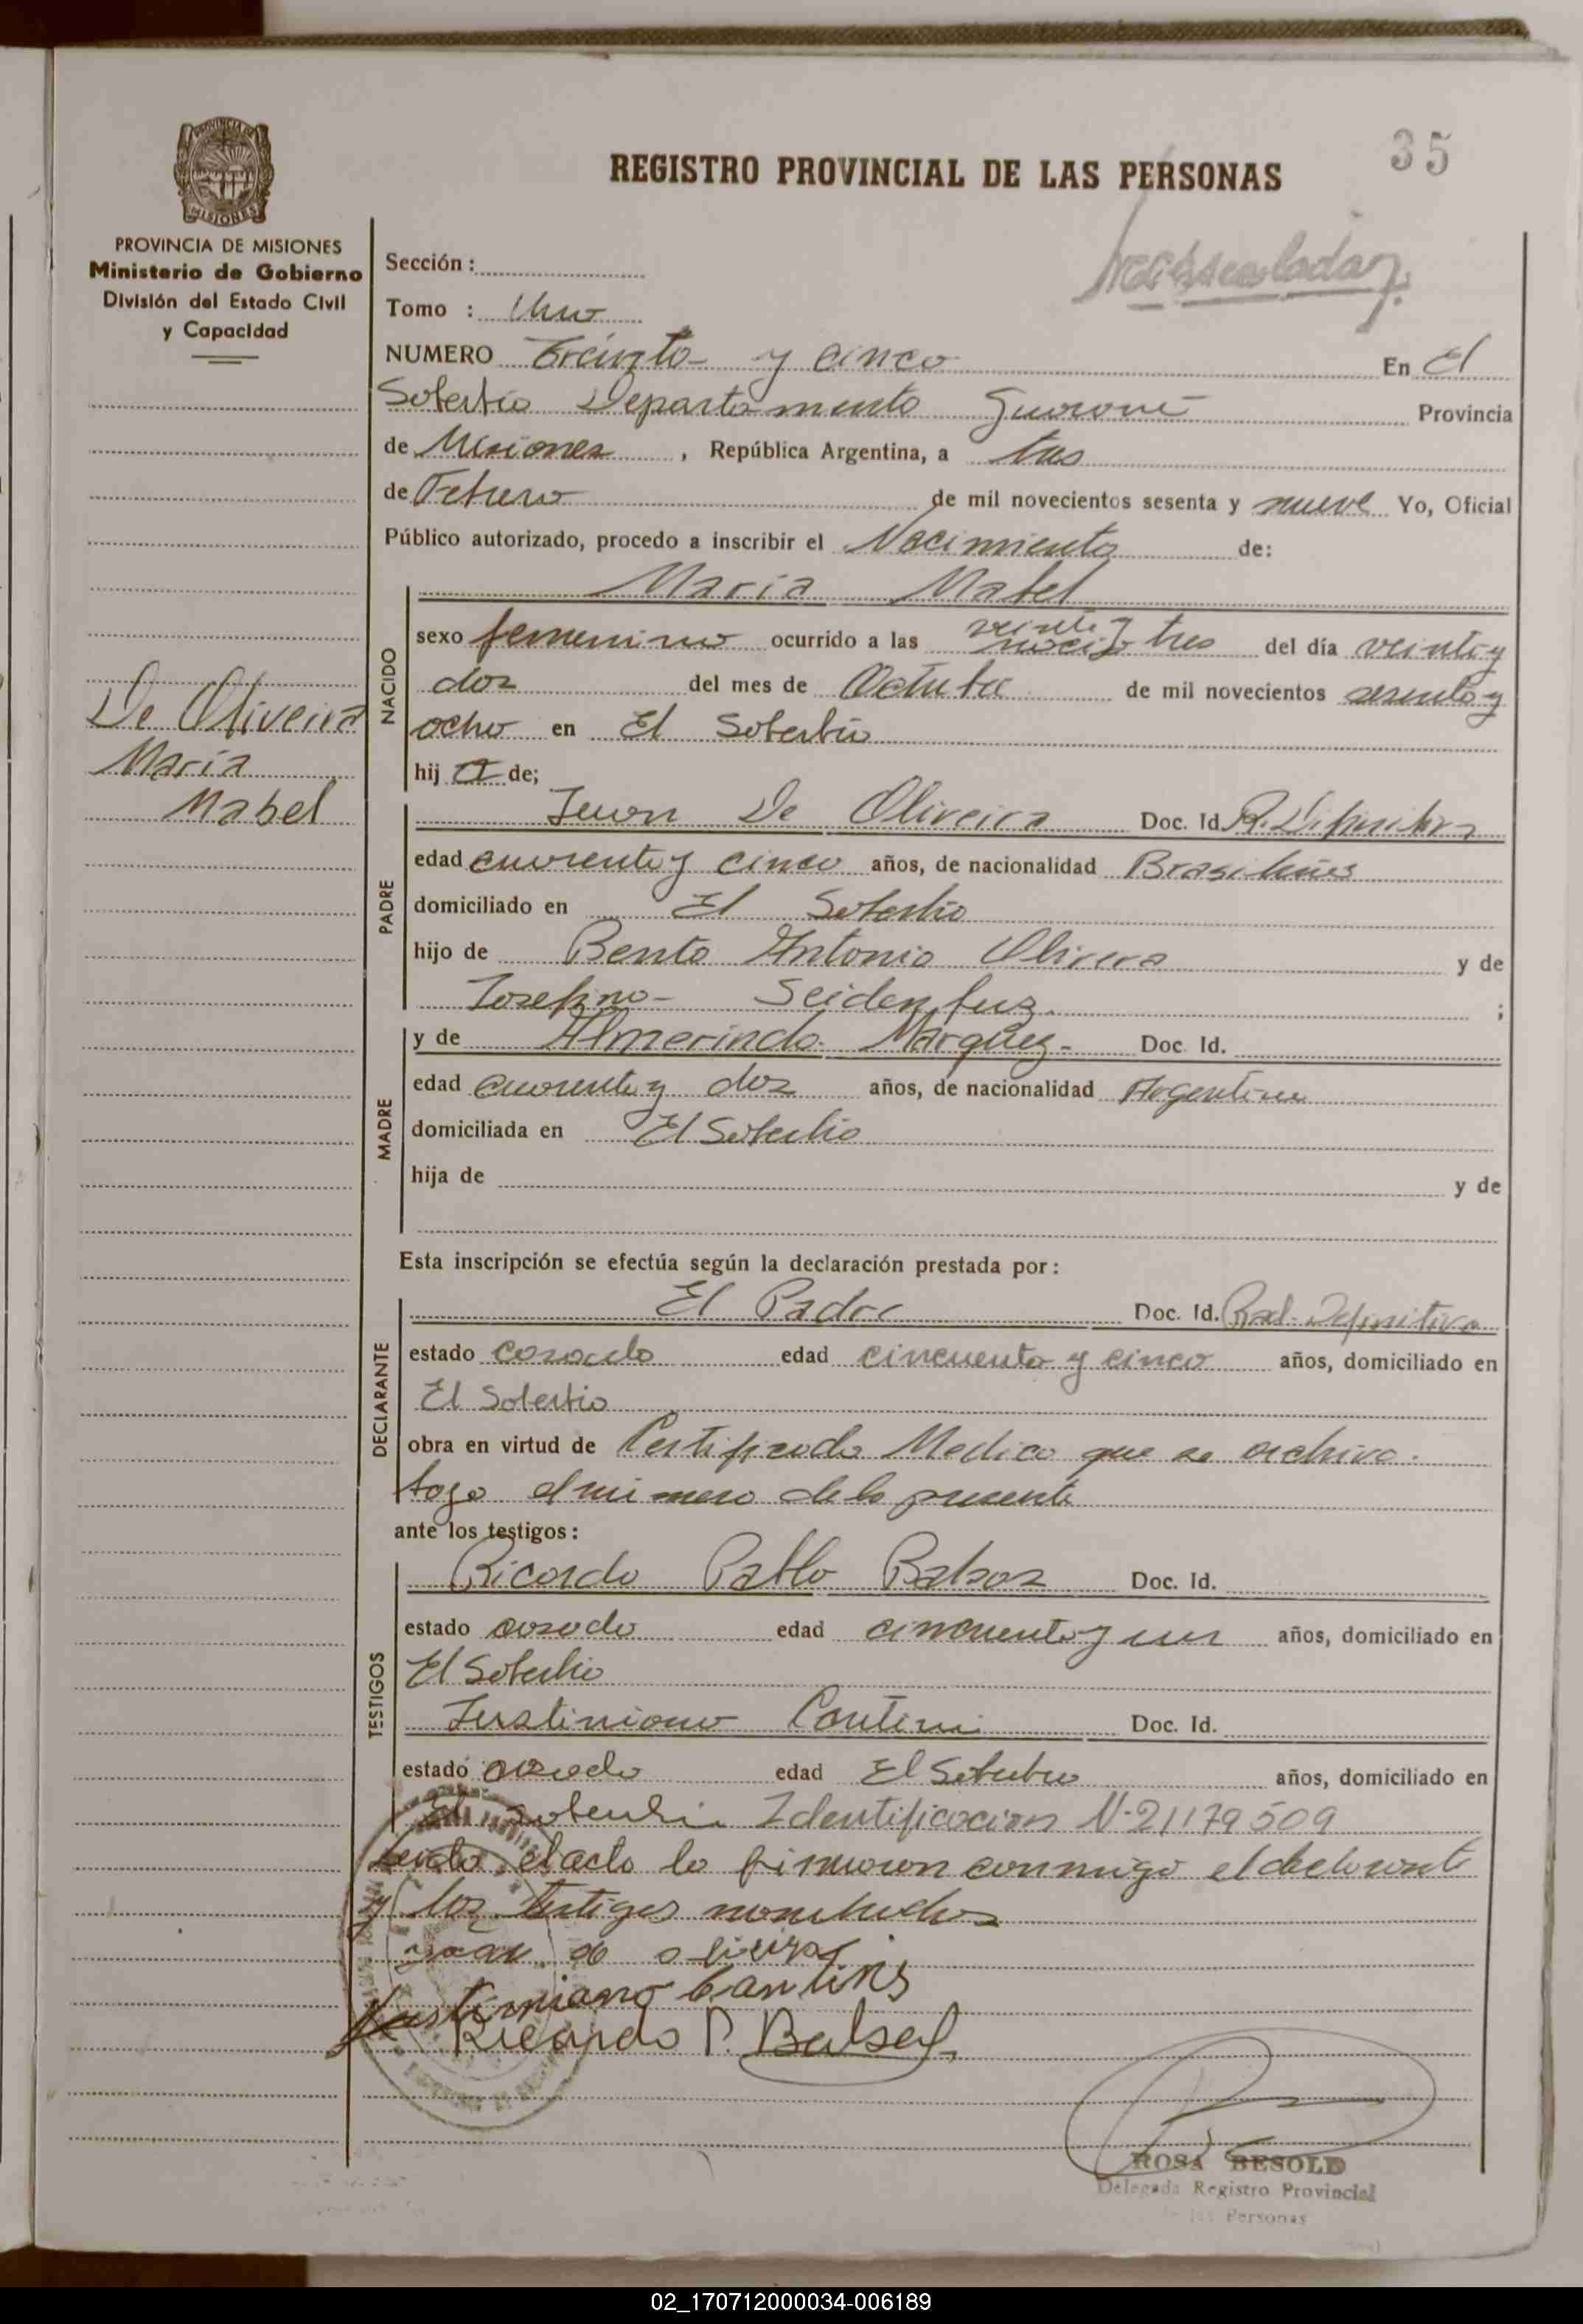 35
REGISTRO PROVINCIAL DE LAS PERSONAS
PROVINCIA DE MISIONES
MISIONES
PROVINCIA DE MISIONES
Ministerio de Gobierno
División del Estado Civil
y Capacidad
Sección :
Tomo : Uno
NUMERO Treinta y cinco En El
Soberbio Departamento Guaraní Provincia
de Misiones , República Argentina, a tres
de Febrero de mil novecientos sesenta y nueve Yo, Oficial
Público autorizado, procedo a inscribir el Nacimiento de:
NACIDO
María Mabel
sexo femenino ocurrido a las veinte y tres del día veinte y
dos del mes de Octubre de mil novecientos sesenta y
ocho en El Soberbio
hij a de;
De Oliveira
María
Mabel
PADRE
Juan De Oliveira Doc. Id. R.
edad cuarenta y cinco años, de nacionalidad Brasileño
domiciliado en El Soberbio
hijo de Bento Antonio Olivera y de
Josefina Seidenfus ;
MADRE
y de Almerinda Márquez Doc. Id.
edad cuarenta y dos años, de nacionalidad Argentina
domiciliada en El Soberbio
hija de y de
Esta inscripción se efectúa según la declaración prestada por :
DECLARANTE
El Padre Doc. Id. Rad. Definitiva
estado casado edad cincuenta y cinco años, domiciliado en
El Soberbio
obra en virtud de Certificado Medico que se archiva
bajo el numero de la presente
ante los testigos :
TESTIGOS
Ricardo Pablo Doc. Id.
estado casado edad cincuenta y un años, domiciliado en
El Soberbio
Justiniano Doc. Id.
estado casado edad El Soberbio años, domiciliado en
El Soberbio Identificacion N. 21179509
Leida el acta la firmaron conmigo el declarante
y los testigos nombrados
de oliveira
Justiniano
Ricardo P.
ROSA BESOLD
Delegada Registro Provincial
de las Personas
02_170712000034-006189